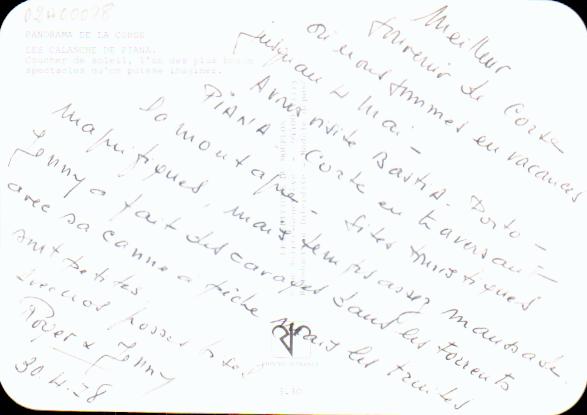 02A00078
PANORAMA DE LA CORSE
LES CALANCHE DE PIANA.
Coucher de soleil, l'un des plus beaux
spectacles qu'on puisse imaginer.
Meilleur
souvenir de Corse
où nous sommes en vacances
jusqu'au 4 Mai -
Avons visité BASTIA - Porto -
PIANA - Corte en traversant
la montagne - Sites touristiques
magnifiques, mais temps assez maussade.
Jenny a fait des ravages dans les torrents
avec sa canne à pêche mais les truites
sont petites
bises
Roger & Jenny
30.4.78